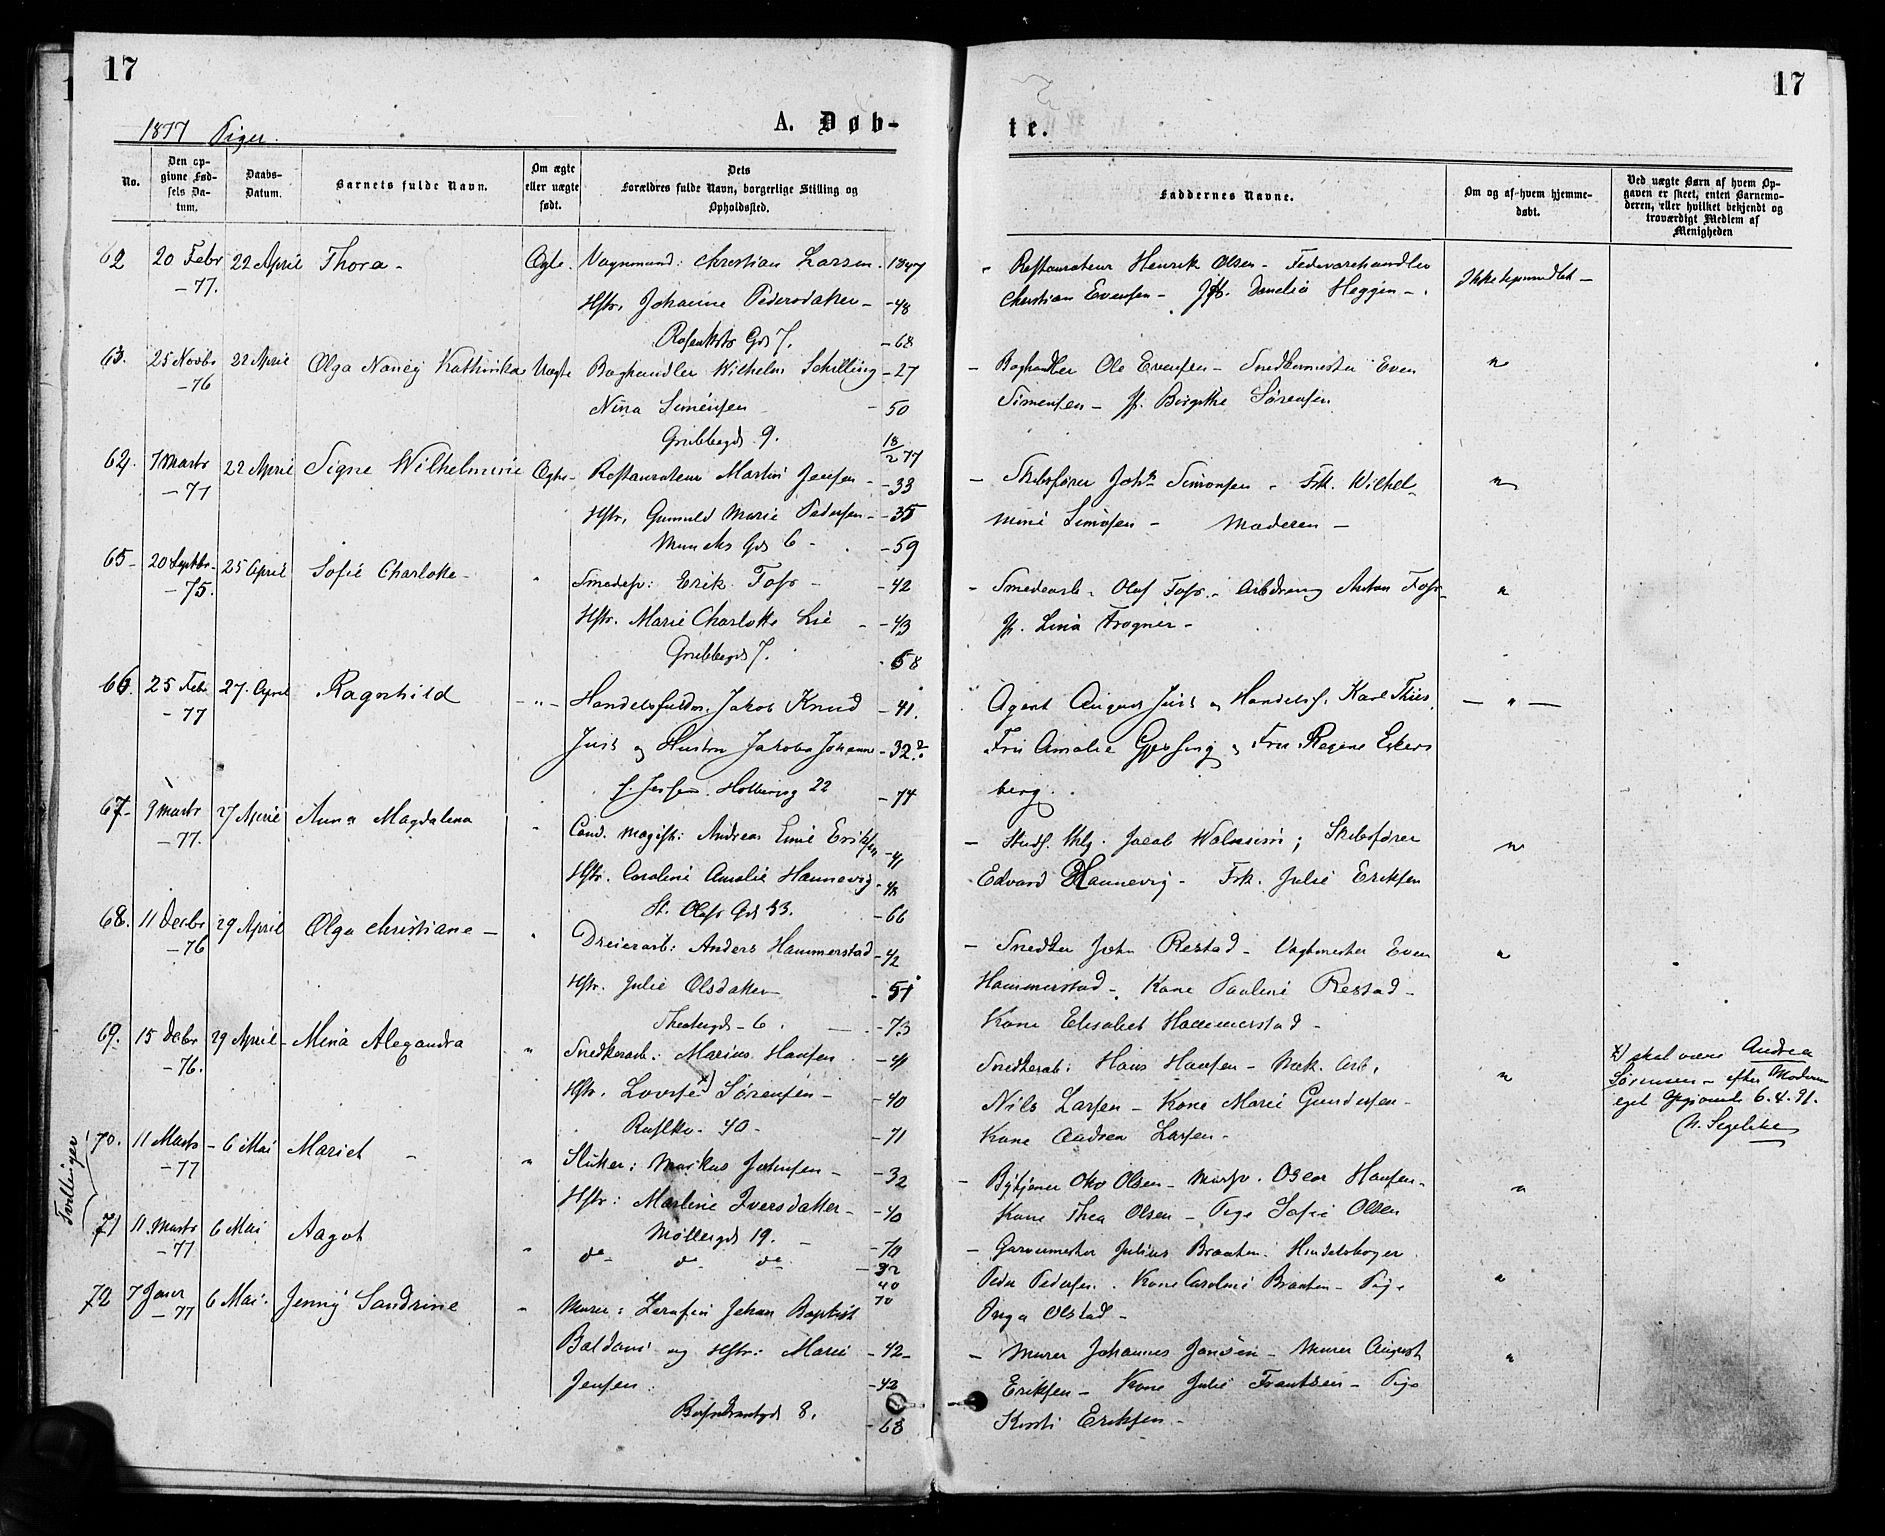 17
17
1877 Piger.
A. Døb-
te.
No.
Den op-
givne Fød-
sels Da-
tum.
Daabs-
Datum.
Barnets fulde Navn.
Om ægte
eller uægte
født.
Dets
Forældres fulde Navn, borgerlige Stilling og
Opholdssted.
Faddernes Navne.
Om og af hvem hjemme-
døbt.
Ved uægte Børn af hvem Op-
gaven er skeet, enten Barnemo-
deren, eller hvilket bekjendt og
troværdigt Medlem af
Menigheden
62 20 Febr 22 April Thora - Ægte. Vognmand: Christian Larsen. 1847
- 77. Hstr. Johanne Pedersdatter - - 48
Gds 7. - 68
Restaurateur Henrik Olsen - Fedevarehandler
Christian Evensen - Amalia Heggen -
63. 25 Novbr 22 April Olga Nancy Kathinka Uægte Boghandler Wilhelm Schilling - 27
- 76 Nina Simensen - 50
Grubbegd. 9. 18/2 77
- Boghandler Ole Evensen - Snedkermester Even "
Simensen - Jf. Birgitte Sørensen
64. 7 Marts 22 April Signe Wilhelmine Ægte - Restaurateur Martin Jensen - - 33
- 77 Hstr. Gunnild Marie Pedersen - - 35
Munchs Gds 6 - - 59
- Skibsfører Johs Simonsen - Frk. Wilhel- "
mine Simonsen - Moderen -
65 - 20 Septbr - 25 April Sofie Charlotte - " Smedesv: Erik Foss - - 42
- 75. Hstr. Marie Charlotte Lie - - 43
Grubbegd 7. - 68
- Smedearb - Olaf Foss - Arbdreng Anton Foss - "
Jf. Lina Frogner -
66. 25 Feb. 27. April Ragnhild - " - Handelsfuldm. Jakob Knud - 41.
- 77 Just og Hustru Jakoba Johanne - 32?
f. Jessen. Holbergsg 22 - 74
Agent August Just og Handelsf. Karl Thiis. - " -
Fru Amalie Gjessing og Fru Regine Eckers
berg.
67 - 9 Marts 27 April Anna Magdalena " Cand. magist: Andreas Emil Eriksen - 41
- 77. Hstr. Caroline Amalie Hannevig - 48
St. Olafs Gd 33. - 66
- Stud. theol. Jacob Walnum; Skibsfører "
Edvard Hannevig - Frk. Julie Eriksen
68. 11 Decbr 29 April Olga Christiane - " Dreierarb: Anders Hammerstad - 42
- 76 Hstr. Julie Olsdatter - 51
Theatergd - 6. - 73
- Snedker John Restad - Vagtmester Even "
Hammerstad - Kone Pauline Restad -
Kone Elisabet Hammerstad -
69. 15 Decbr 29 April - Mina Alexandra " Snedkerarb: Marius Hansen - 41
- 76. Hstr. Lovise x) Sørensen - - 40
40 - - 71
Snedkerarb: Hans Hansen - Mek. Arb. "
Nils Larsen - Kone Marie Gundersen -
Kone Andrea Larsen -
x) skal være Andrea
Sørensen - efter Moderens
eget Opgivende 6.4.91.
N. Segelcke
Tvillinger
70. 11 Marts - 6 Mai Mariet - " Sliker: Markus Johnsen - - 32
- 77 Hstr: Marline Iversdatter - - 40
Møllergd 19. - - 70
- Bytjener Otto Olsen - Oscar Hansen - "
Kone Thea Olsen - Pige Sofie Olsen
71 11. Marts 6 Mai Aagot " do do do - 32
- 77 40
70
- Garvermester Julius Braaten.
Peder Pedersen. Kone Caroline Braaten - Pige "
Inga Olstad -
72 7 Janr 6 Mai. Jenny Sandrine " Murer: Serafin Johan Baptist
- 77 Baldoni og Hstr: Marie - 42 -
Jensen: - 42
8. - 68
- Murer Johannes Jansen - Murer August "
Eriksen - Kone Julie Frantsen - Pige
Kirsti Eriksen -